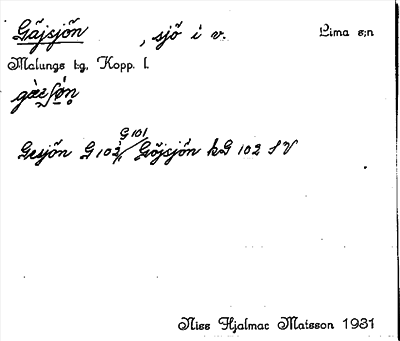 Gäjsjön , sjö i v. Lima s:n
Malungs tg, Kopp. l.
G 101
Gesjön G 102 Göjsjön kG 102 SV
Niss Hjalmar Matsson 1931